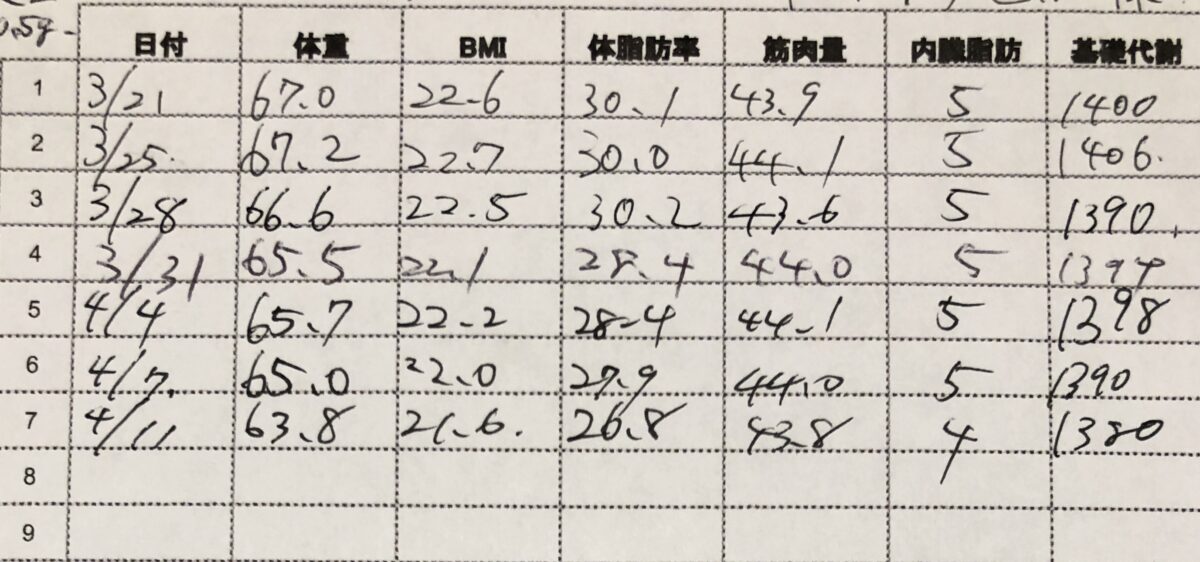 0.5g-
日付 体重 BMI 体脂肪率 筋肉量 内臓脂肪 基礎代謝
1 3/21 67.0 22.6 30.1 43.9 5 1400
2 3/25. 67.2 22.7 30.0 44.1 5 1406.
3 3/28 66.6 22.5 30.2 43.6 5 1390.
4 3/31 65.5 22.1 28.4 44.0 5 1394
5 4/4 65.7 22.2 28.4 44.1 5 1398
6 4/7. 65.0 22.0 27.9 44.0 5 1390
7 4/11 63.8 21.6. 26.8 43.8 4 1380
8
9